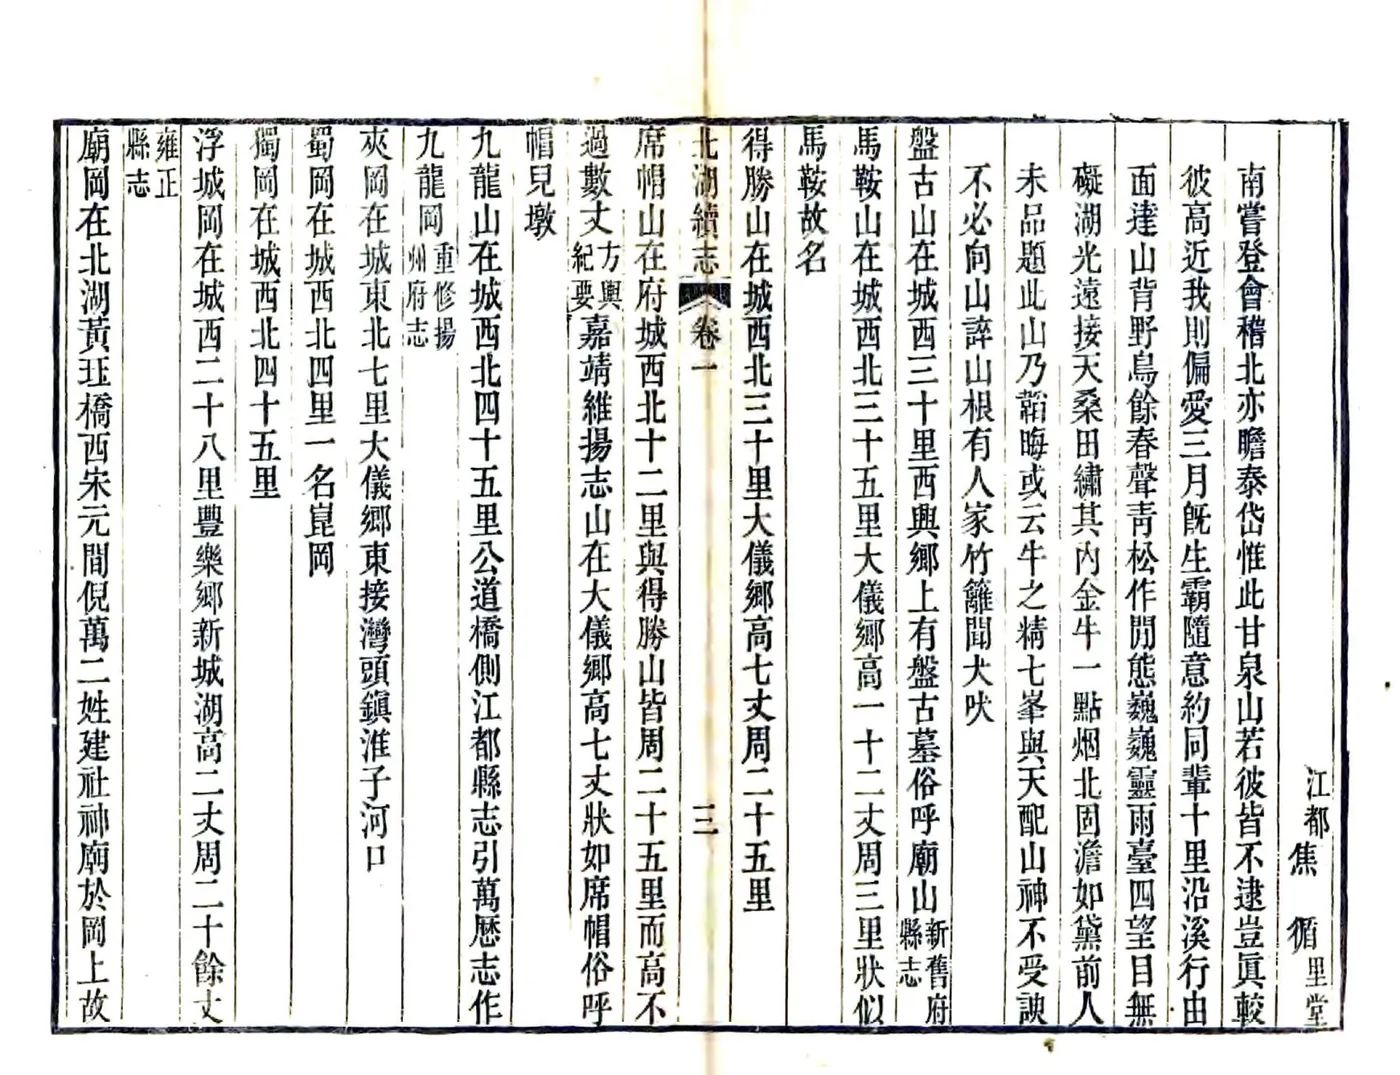 江都焦　循里堂
南嘗登會稽北亦瞻泰岱惟此甘泉山若彼皆不逮豈眞較
彼高近我則偏愛三月旣生霸隨意約同輩十里沿溪行由
面達山背野鳥餘春聲靑松作閒態巍巍靈雨臺四望目無
礙湖光遠接天桑田繡其內金牛一點烟北固澹如黛前人
未品題此山乃韜晦或云牛之精七峯與天配山神不受諛
不必向山誶山根有人家竹籬聞犬吠
盤古山在城西三十里西興鄉上有盤古墓俗呼廟山新舊府縣志
馬鞍山在城西北三十五里大儀鄉高一十二丈周三里狀似
馬鞍故名
得勝山在城西北三十里大儀鄉高七丈周二十五里
北湖續志 卷一 三
席帽山在府城西北十二里與得勝山皆周二十五里而高不
過數丈方輿紀要嘉靖維揚志山在大儀鄉高七丈狀如席帽俗呼
帽兒墩
九龍山在城西北四十五里公道橋側江都縣志引萬厯志作
九龍岡重修揚州府志
夾岡在城東北七里大儀鄉東接灣頭鎭淮子河口
蜀岡在城西北四里一名崑岡
獨岡在城西北四十五里
浮城岡在城西二十八里豐樂鄉新城湖高二丈周二十餘丈
雍正縣志
廟岡在北湖黃珏橋西宋元間倪萬二姓建社神廟於岡上故